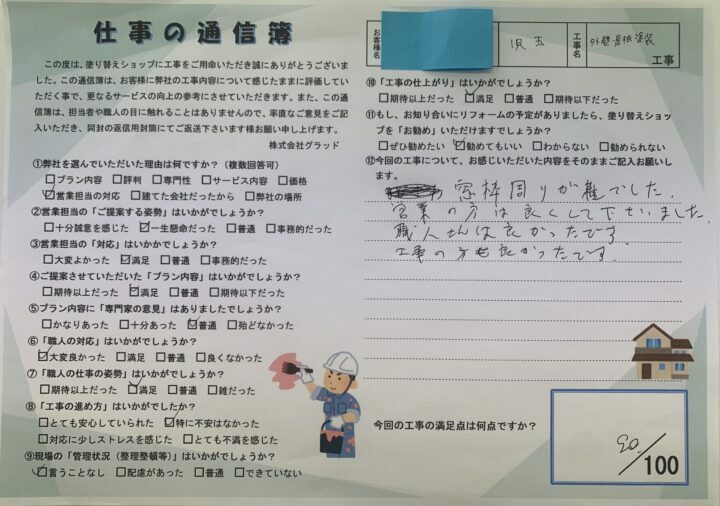 仕事の通信簿
この度は、塗り替えショップに工事をご用命いただき誠にありがとうござい
ました。この通信簿は、お客様に弊社の工事内容について感じたままに評価してい
ただく事で、更なるサービスの向上の参考にさせていただきます。また、この通
信簿は、担当者や職人の目に触れることはありませんので、率直なご意見をご記
入いただき、同封の返信用封筒にてご返送下さいます様お願い申し上げます。
株式会社グラッド
①弊社を選んでいただいた理由は何ですか？（複数回答可）
□プラン内容 □評判 □専門性 □サービス内容 □価格
☑営業担当の対応 □建てた会社だったから □弊社の場所
②営業担当の「ご提案する姿勢」はいかがでしょうか？
□十分誠意を感じた ☑一生懸命だった □普通 □事務的だった
③営業担当の「対応」はいかかでしょうか？
□大変よかった ☑満足 □普通 □事務的だった
④ご提案させていただいた「プラン内容」はいかがでしょうか？
□期待以上だった ☑満足 □普通 □期待以下だった
⑤プラン内容に「専門家の意見」はありましたでしょうか？
□かなりあった □十分あった ☑普通 □殆どなかった
⑥「職人の対応」はいかがでしょうか？
☑大変良かった □満足 □普通 □良くなかった
⑦「職人の仕事の姿勢」はいかがでしょうか？
□期待以上だった ☑満足 □普通 □雑だった
⑧「工事の進め方」はいかがでしたか？
□とても安心していられた ☑特に不安はなかった
□対応に少しストレスを感じた □とても不満を感じた
⑨現場の「管理状況（整理整頓等）」はいかがでしょうか？
☑言うことなし □配慮があった □普通 □できていない
お客様名
児玉
工事名
外壁・屋根塗装
工事
⑩「工事の仕上がり」はいかがでしょうか？
□期待以上だった ☑満足 □普通 □期待以下だった
⑪もし、お知り合いにリフォームの予定がありましたら、塗り替えショッ
プを「お勧め」いただけますでしょうか？
□ぜひ勧めたい ☑勧めてもいい □わからない □勧められない
⑫今回の工事について、お感じいただいた内容をそのままご記入お願いし
ます。
窓枠周りが雑でした.
営業の方は良くして下さいました.
職人さんは良かったです.
工事の方も良かったです.
今回の工事の満足点は何点ですか？
90./100